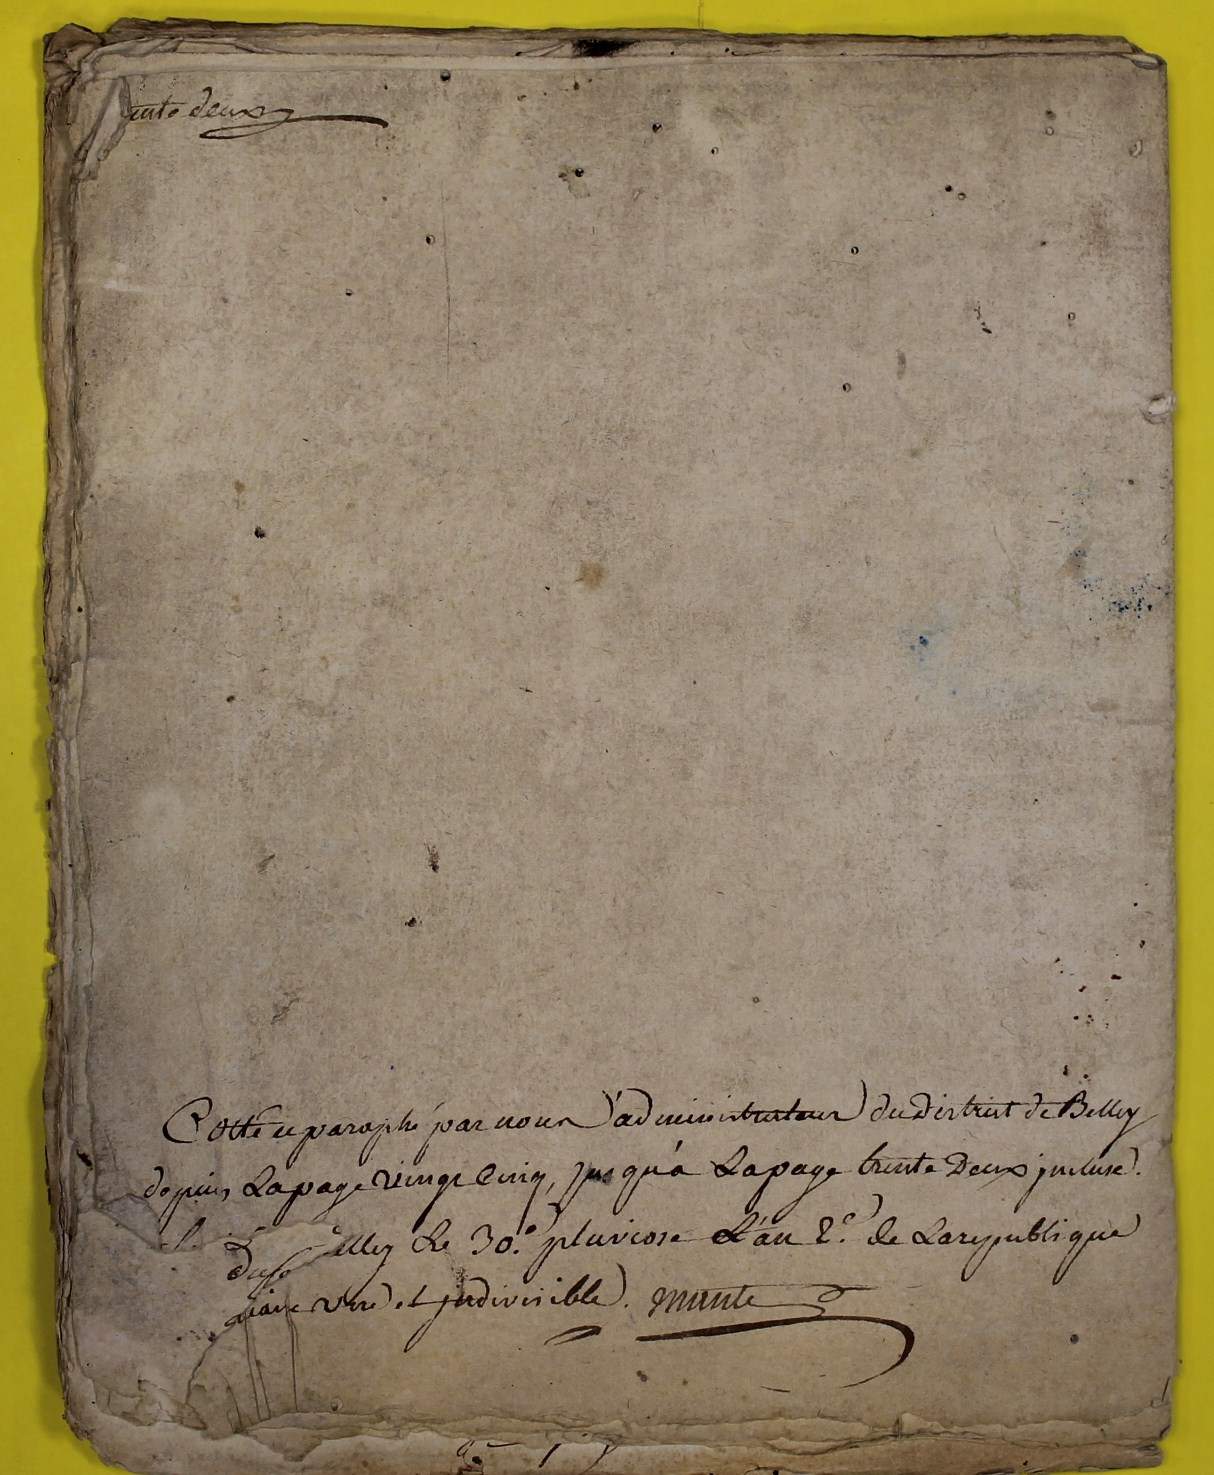 ente deux
Cotté et paraphé par nous administrateur du district de Belley
depuis La page vingt Cinq, jusqu'à La page trente Deux jncluse.
elley Le 30.e pluviose L'an 2.e de La republique
une et jndivisible. munte